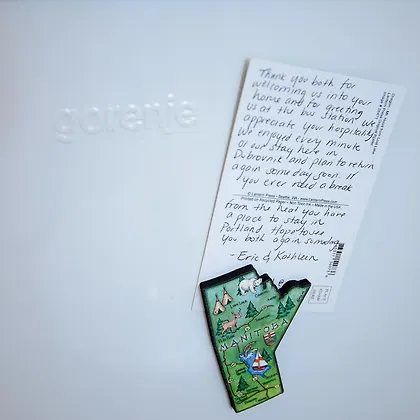 gorenje
Thank you both for
welcoming us into your
home and for greeting
us at the bus station. We
appreciate your hospitality.
We enjoyed every minute
of our stay here in
Dubrovnik and plan to return
again someday soon. If
you ever need a break
© Lantern Press • Seattle, WA • www.LanternPress.com
Printed on Recycled Paper • Non Toxic Ink • Made in the USA
from the heat you have
a place to stay in
Portland. Hope to see
you both again someday
- Eric & Kathleen
PLACE
STAMP
HERE
MANITOBA